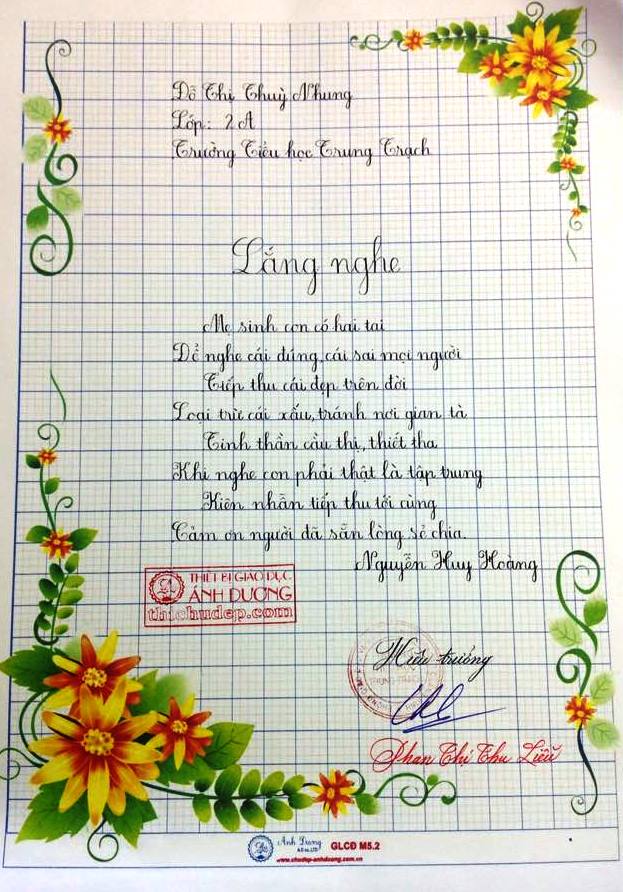 Đỗ Thị Thuỳ Nhung
Lớp: 2A
Trường Tiểu học Trung Trạch
Lắng nghe
Mẹ sinh con có hai tai
Để nghe cái đúng, cái sai mọi người
Tiếp thu cái đẹp trên đời
Loại trừ cái xấu, tránh nơi gian tà
Tinh thần cầu thị, thiết tha
Khi nghe con phải thật là tập trung
Kiên nhẫn tiếp thu tới cùng
Cảm ơn người đã sẵn lòng sẻ chia.
Nguyễn Huy Hoàng
THIẾT BỊ GIÁO DỤC
ÁNH DƯƠNG
thichudep.com
Hiệu trưởng
Phan Thị Thu Liễu
Ánh Dương
GLCĐ M5.2
www.chudep-anhduong.com.vn